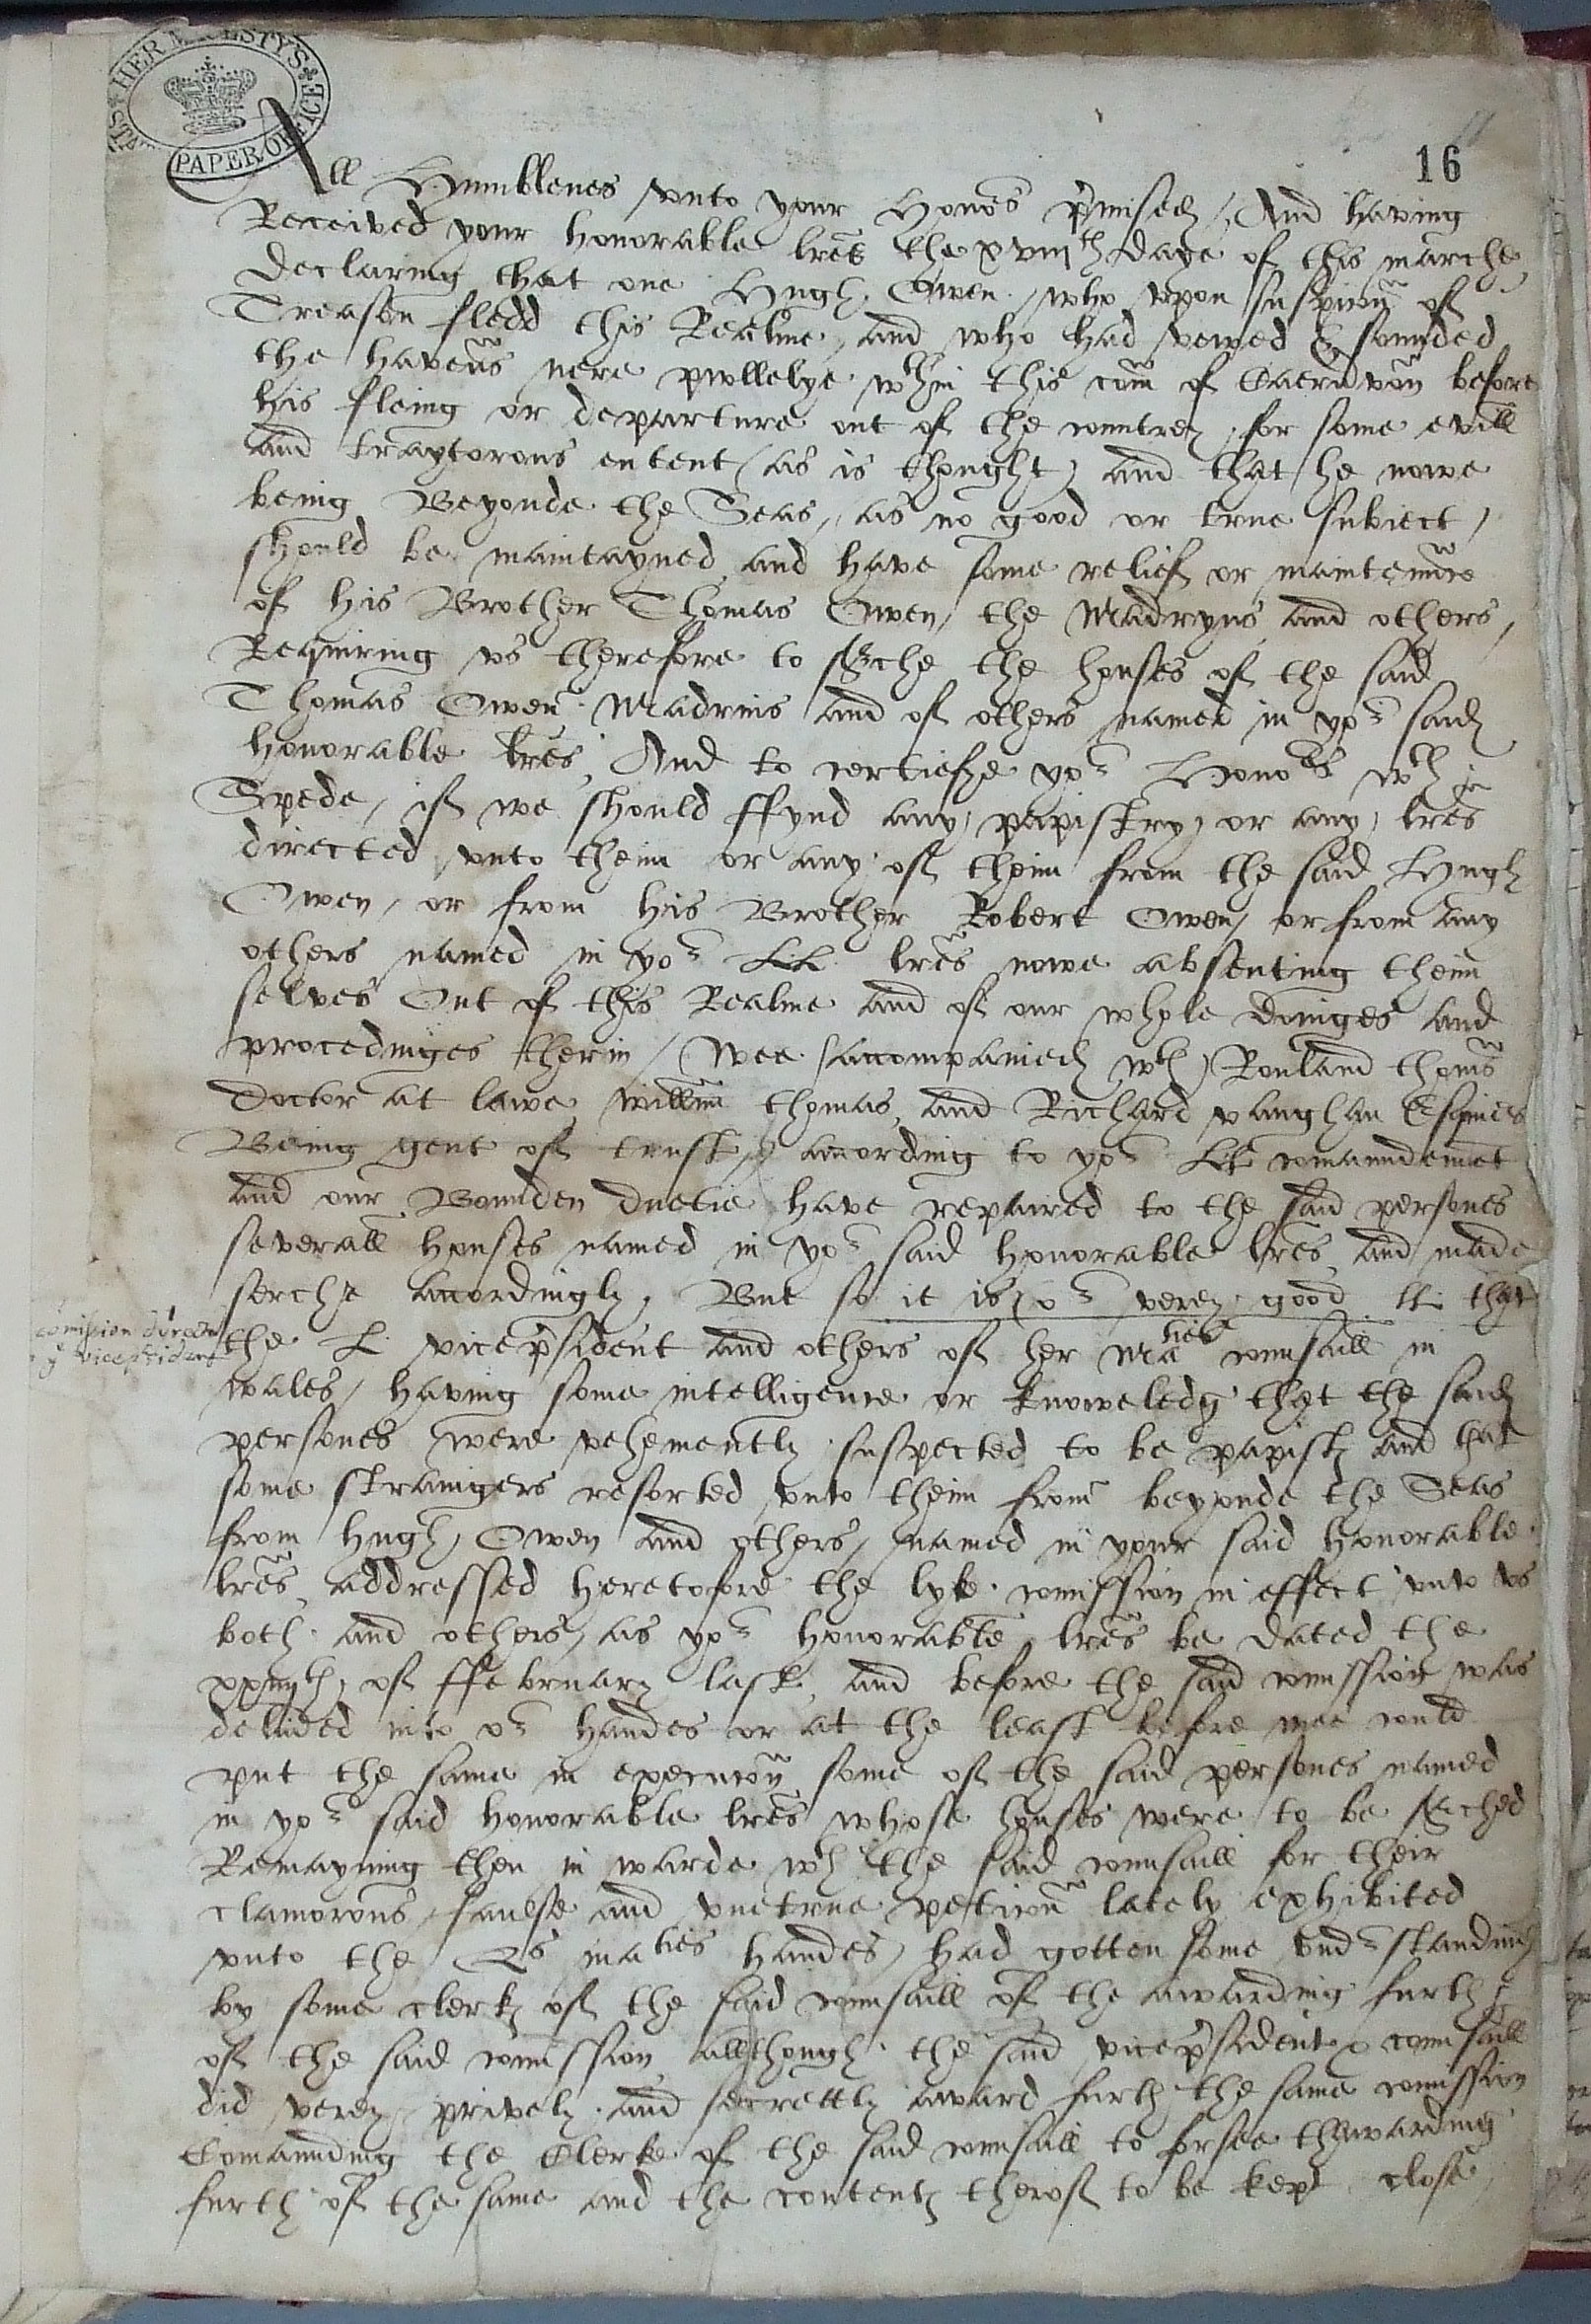 HER MAIESTY'S
STATE
PAPER OFFICE
16
All Humblenes vnto your Honors p̄mised, And having
Received your honorable lrēs the xviijth daye of this marche
declaring that one Hugh Owen, who vpon suspicion of
Treason fledd this Realme, and who had vewed & sounded
the havens nere pwllelye wthin this com̄ of Caernarvon before
his fleing or departure out of the countrey, for some evill
and traytorous entent (as is thought) and that he nowe
being Beyonde the Seas, as no good or true subiect,
should be maintayned and have some relief or maintennce
of his Brother Thomas Owen, the Madryns and others,
Requiring vs therefore to serche the houses of the said
Thomas Owen Madrins and of others named in yor said
honorable lrēs, And to certiefye yor Honors wth
Spede, if we should ffynd any papistry or any lrēs
directed vnto theim or any of theim from the said Hugh
Owen, or from his Brother Robert Owen, or from any
others named in yor LL lrēs nowe absenting theim
selves Out of this Realme and of our whole doinges and
procedinges therin / Wee (accompanied wth) Rouland thomas
doctor at lawe willm̄ thomas and Richard vaughan Esquiers
Being gent of trust, according to yor LL comaundemet
and our Bounden duetie have repaired to the said persones
severall houses named in yor said honorable lrēs and made
serche accordingly, But so it is, or verey good ll: that
comission dyrected
y vicepsident
the L vicep̄sident and others of her Maties counsaill in
wales, having some intelligence or knoweledg that the said
persones were vehemently suspected to be papists and that
some straingers resorted vnto theim from beyonde the Seas
from Hugh Owen and others, named in your said honorable
lrēs, addressed heretofore the lyke comission in effect vnto vs
both and others, as yor honorable lrēs be dated the
of ffebruary last, and before the said comission was
delived into or handes or at the least before wee could
put the same in execucon some of the said persones named
in yor said honorable lrēs whose houses were to be serched
Remayning then in warde wth the said counsaill for their
clamorous, faulse and vnetrue peticon lately exhibited
vnto the Qs maties handes, had gotten some vnderstanding
by some clerk of the said counsaill of the awarding furth
of the said comission allthough the said vicep̄sident & counsaill
did verey prively and secrettly award furth the same comission
Comaunding the Clerke of the said counsaill to forsee thawarding
furth of the same and the contents therof to be kept close